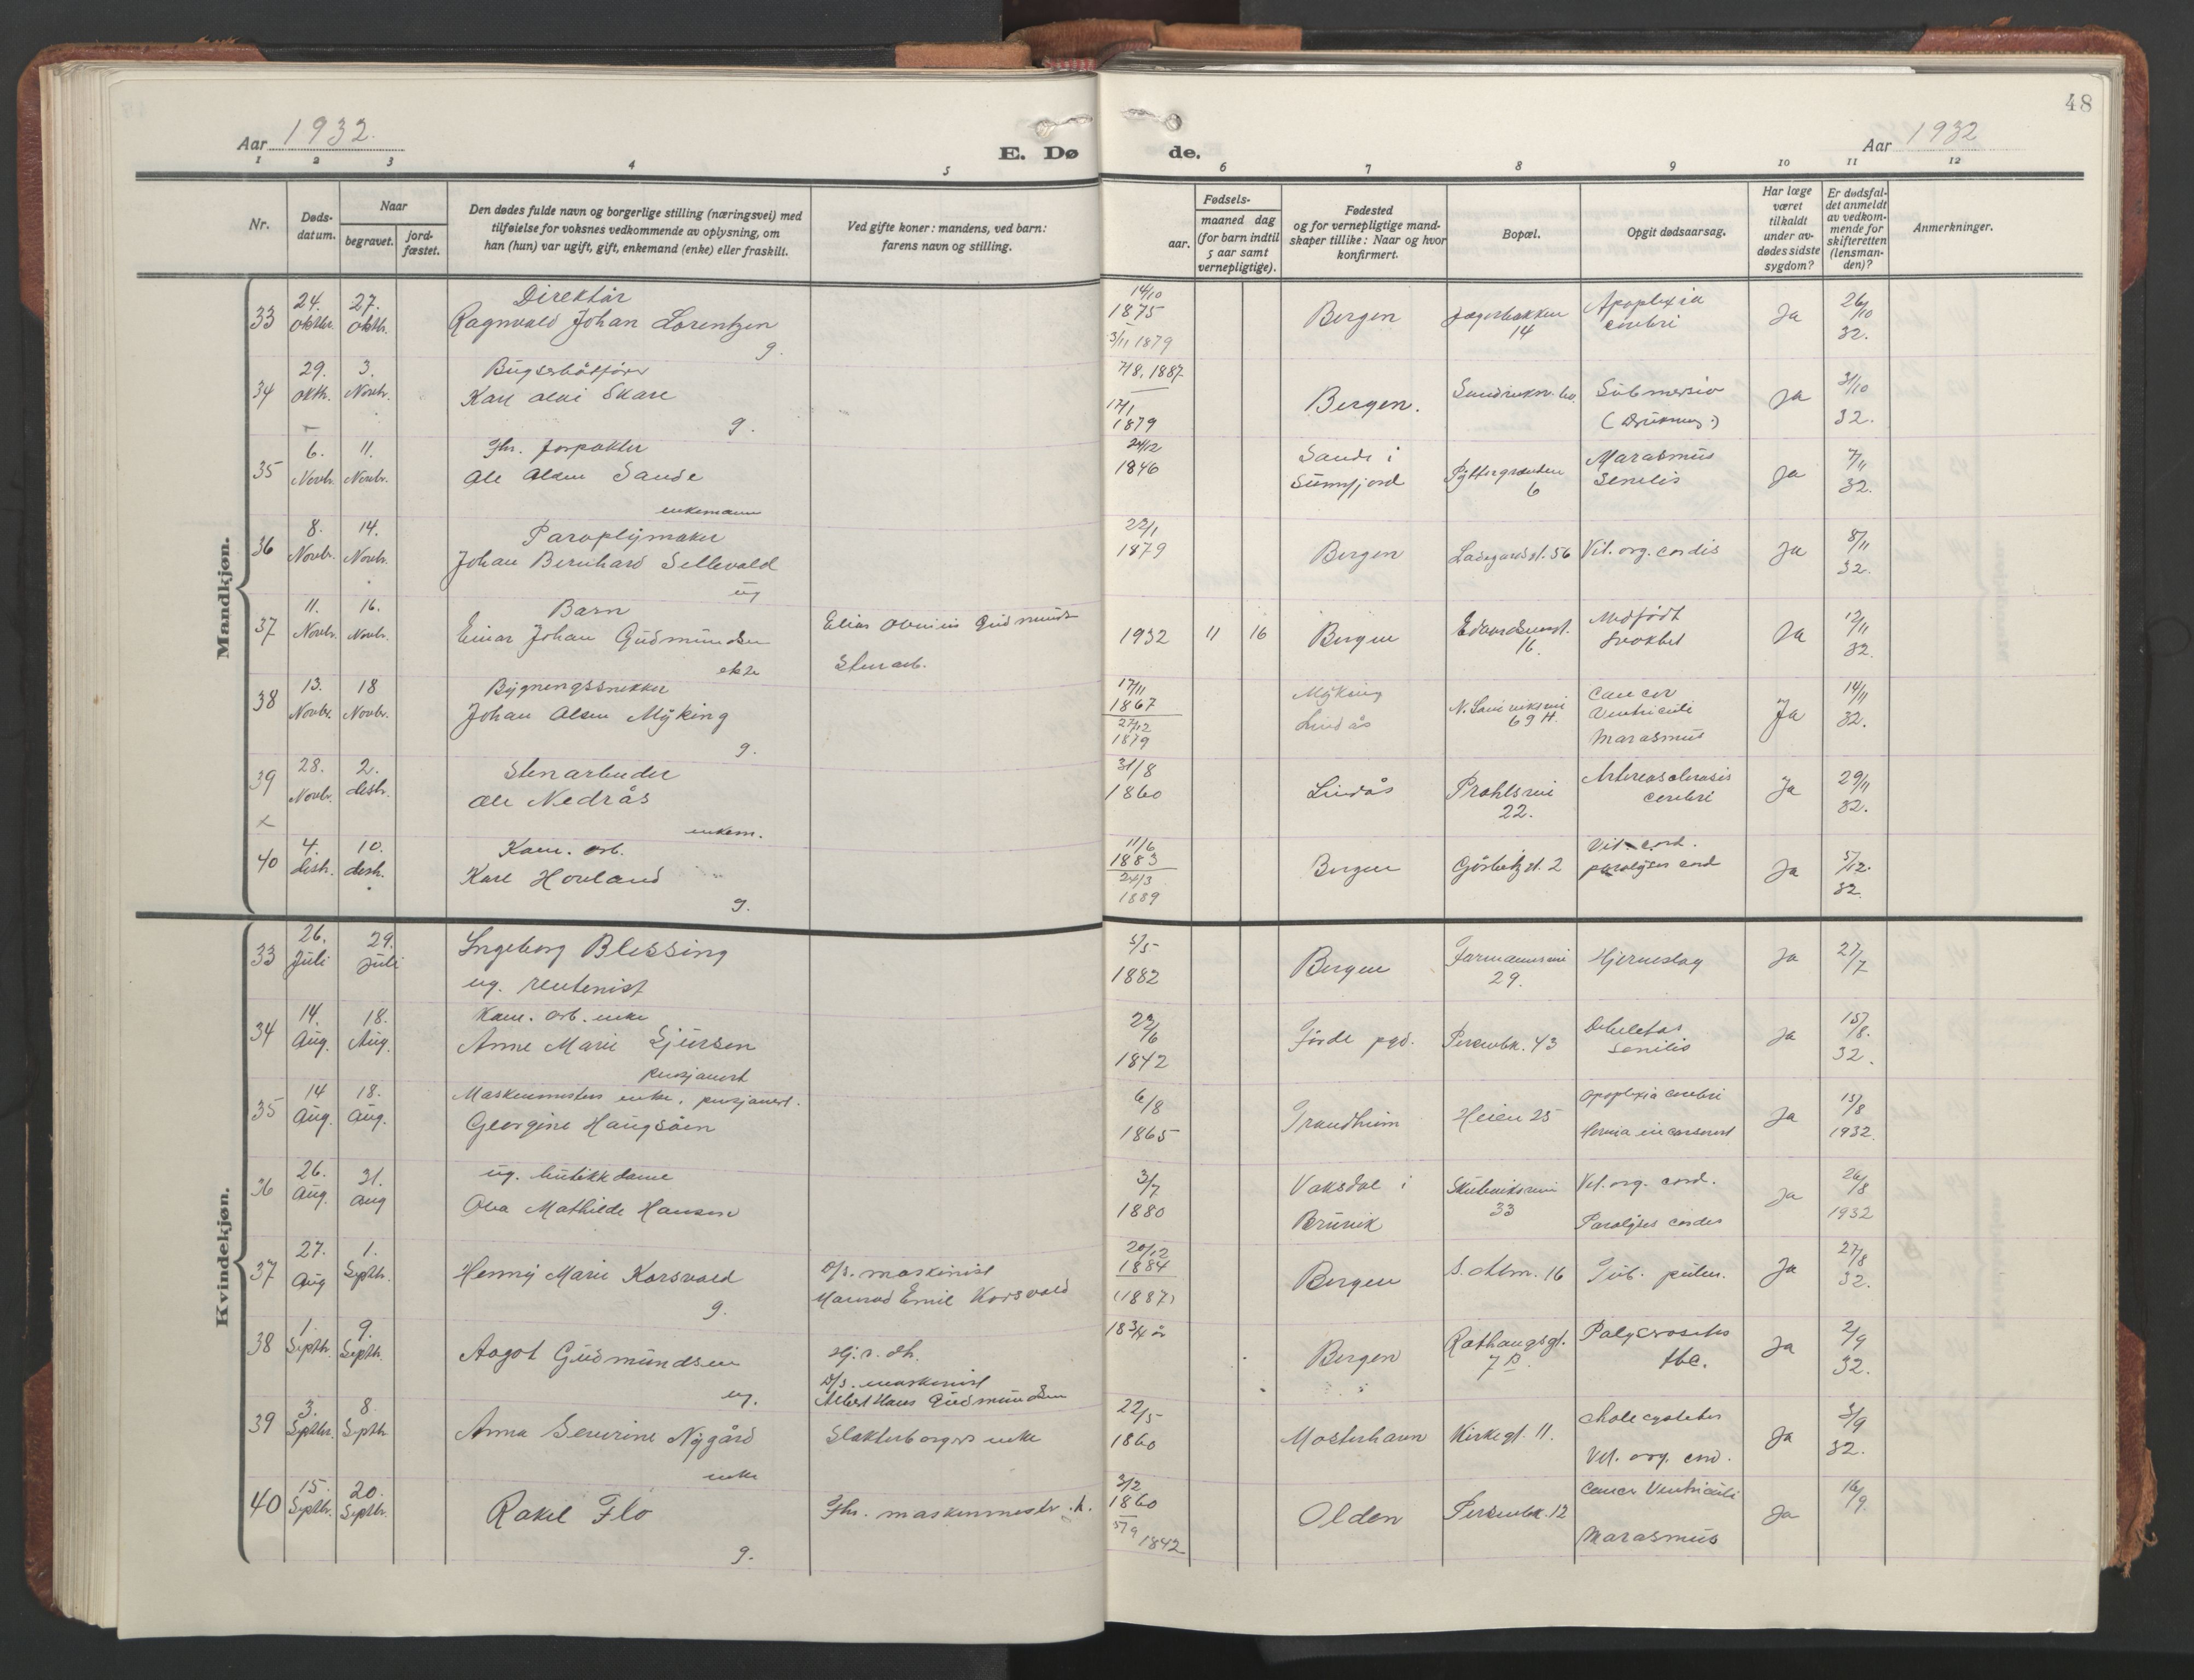 48
Aar 1932.
E. Dø
de.
Aar 1932
1 2 3 4 5 6 7 8 9 10 11 12
Nr.
Døds-
datum.
Naar
begravet.
jord-
fæstet.
Den dødes fulde navn og borgerlige stilling (næringsvei) med
tilføielse for voksnes vedkommende av oplysning, om
han (hun) var ugift, gift, enkemand (enke) eller fraskilt.
Ved gifte koner: mandens, ved barn:
farens navn og stilling.
aar.
Fødsels-
maaned dag
(for barn indtil
5 aar samt
vernepligtige).
Fødested
og for vernepligtige mand-
skaper tillike: Naar og hvor
konfirmert.
Bopæl.
Opgit dødsaarsag.
Har læge
været
tilkaldt
under av-
dødes sidste
sygdom?
Er dødsfal-
det anmeldt
av vedkom-
mende for
skifteretten
(lensman-
den)?
Anmerkninger.
Mandkjøn.
33 24. oktbr. 27. oktb.
Direktør
Ragnvald Johan Lorentzen
g.
14/10
1875
3/11 1879
Bergen
14
Apoplexia
cerebri
Ja
26/10
32.
34 29. oktb. 3. Novbr.
Bugserbåtfører
Karl Skare
g.
7/8. 1887
17/1
1879
Bergen.
Submersio
(Drukning)
Ja
31/10
32.
35 6. Novbr. 11. Novbr.
Fhv. forpakter
Ole Olsen Sande
enkemann
24/12
1846
Sande i
Sunnfjord
6
Marasmus
Senilis
Ja
7/11
32.
36 8. Novbr. 14. Novbr.
Paraplymaker
Johan Bernhard Sellevold
ug
22/1
1879
Bergen
Ladegårdsgt. 56
Vit. org. cordis
Ja
8/11
32.
37 11. Novbr. 16. Novbr.
Barn
Einar Johan Gudmundsen
ekte
Elias Gudmunds
Stenarb.
1932
11
16
Bergen
16.
Medfødt
svakhet
Ja
12/11
32.
38 13. Novbr. 18 Novbr.
Bygningssnekker
Johan Olsen Myking
g.
17/11
1867
27/12
1879
Myking
Lindås
69 H.
Cancer
Ventriculi
Marasmus
Ja
14/11
32.
39 28. Novbr. 2. desbr.
Stenarbeider
Ole Nedrås
enkem.
31/8
1860
Lindås
Prahlsvei
22.
Arteriosclerosis
cerebri
Ja
29/11
32.
40 4. desbr. 10. desbr.
Kom. arb.
Karl Hovland
g.
11/6
1883
24/3
1889
Bergen
Gørbitzgt. 2
Vit. cord.
paralyses cord
Ja
5/12.
32.
Kvindekjøn.
33 26. Juli 29. Juli
Ingeborg Blessing
ug. rentenist
5/5
1882
Bergen
Formannsvei
29.
Hjerneslag
Ja
27/7
34 14. Aug. 18. Aug.
Kom. arb. enke
Anne Marie Sjursen
pensjonert
22/6
1842
Førde pgd.
Persenbk. 43
Debilitas
senilis
Ja
15/8.
32.
35 14 Aug. 18. Aug.
Maskinmesters enke, pensjonert.
Georgine Haugsøen
6/8
1865
Trondheim
Heien 25
Apoplexia cerebri
Hernia incarserert
Ja
15/8
1932.
36 26. Aug. 31. aug
ug. butikkdame
Olva Mathilde Hansen
3/7
1880
Vaksdal i
Bruvik
Skuteviksvei
33
Vit. org. cord.
Paralyses cordis
Ja
26/8
1932
37 27. Aug 1. Septbr.
Henny Marie Korsvold
g.
D/S. maskinist
Emil Korsvold
20/12
1884
(1887)
Bergen
S. Alm. 16
Tub. pulm.
Ja
27/8
32.
38 1. Septbr. 9. Septbr.
Aagot Gudmundsen
ug.
D/S. maskinist
Albert Hans Gudmundsen
18 3/4 år
Bergen
Rothaugsgt.
7 B.
tbc.
Ja
2/9
32.
39 3. Septbr. 8. Septb
Anna Severine Nygård
enke
Slakterborgers enke
22/5
1860
Mosterhavn
Kirkegt. 11.
cholecystitis
Vit. org. cord.
Ja
3/9
32.
40 15. Septbr. 20. Septbr.
Rakel Flo
g.
Fhv. maskinmestr. h.
3/2
1860
5/9 1842
Olden
Persenbk. 12
Cancer Ventriculi
Marasmus
Ja
16/9.